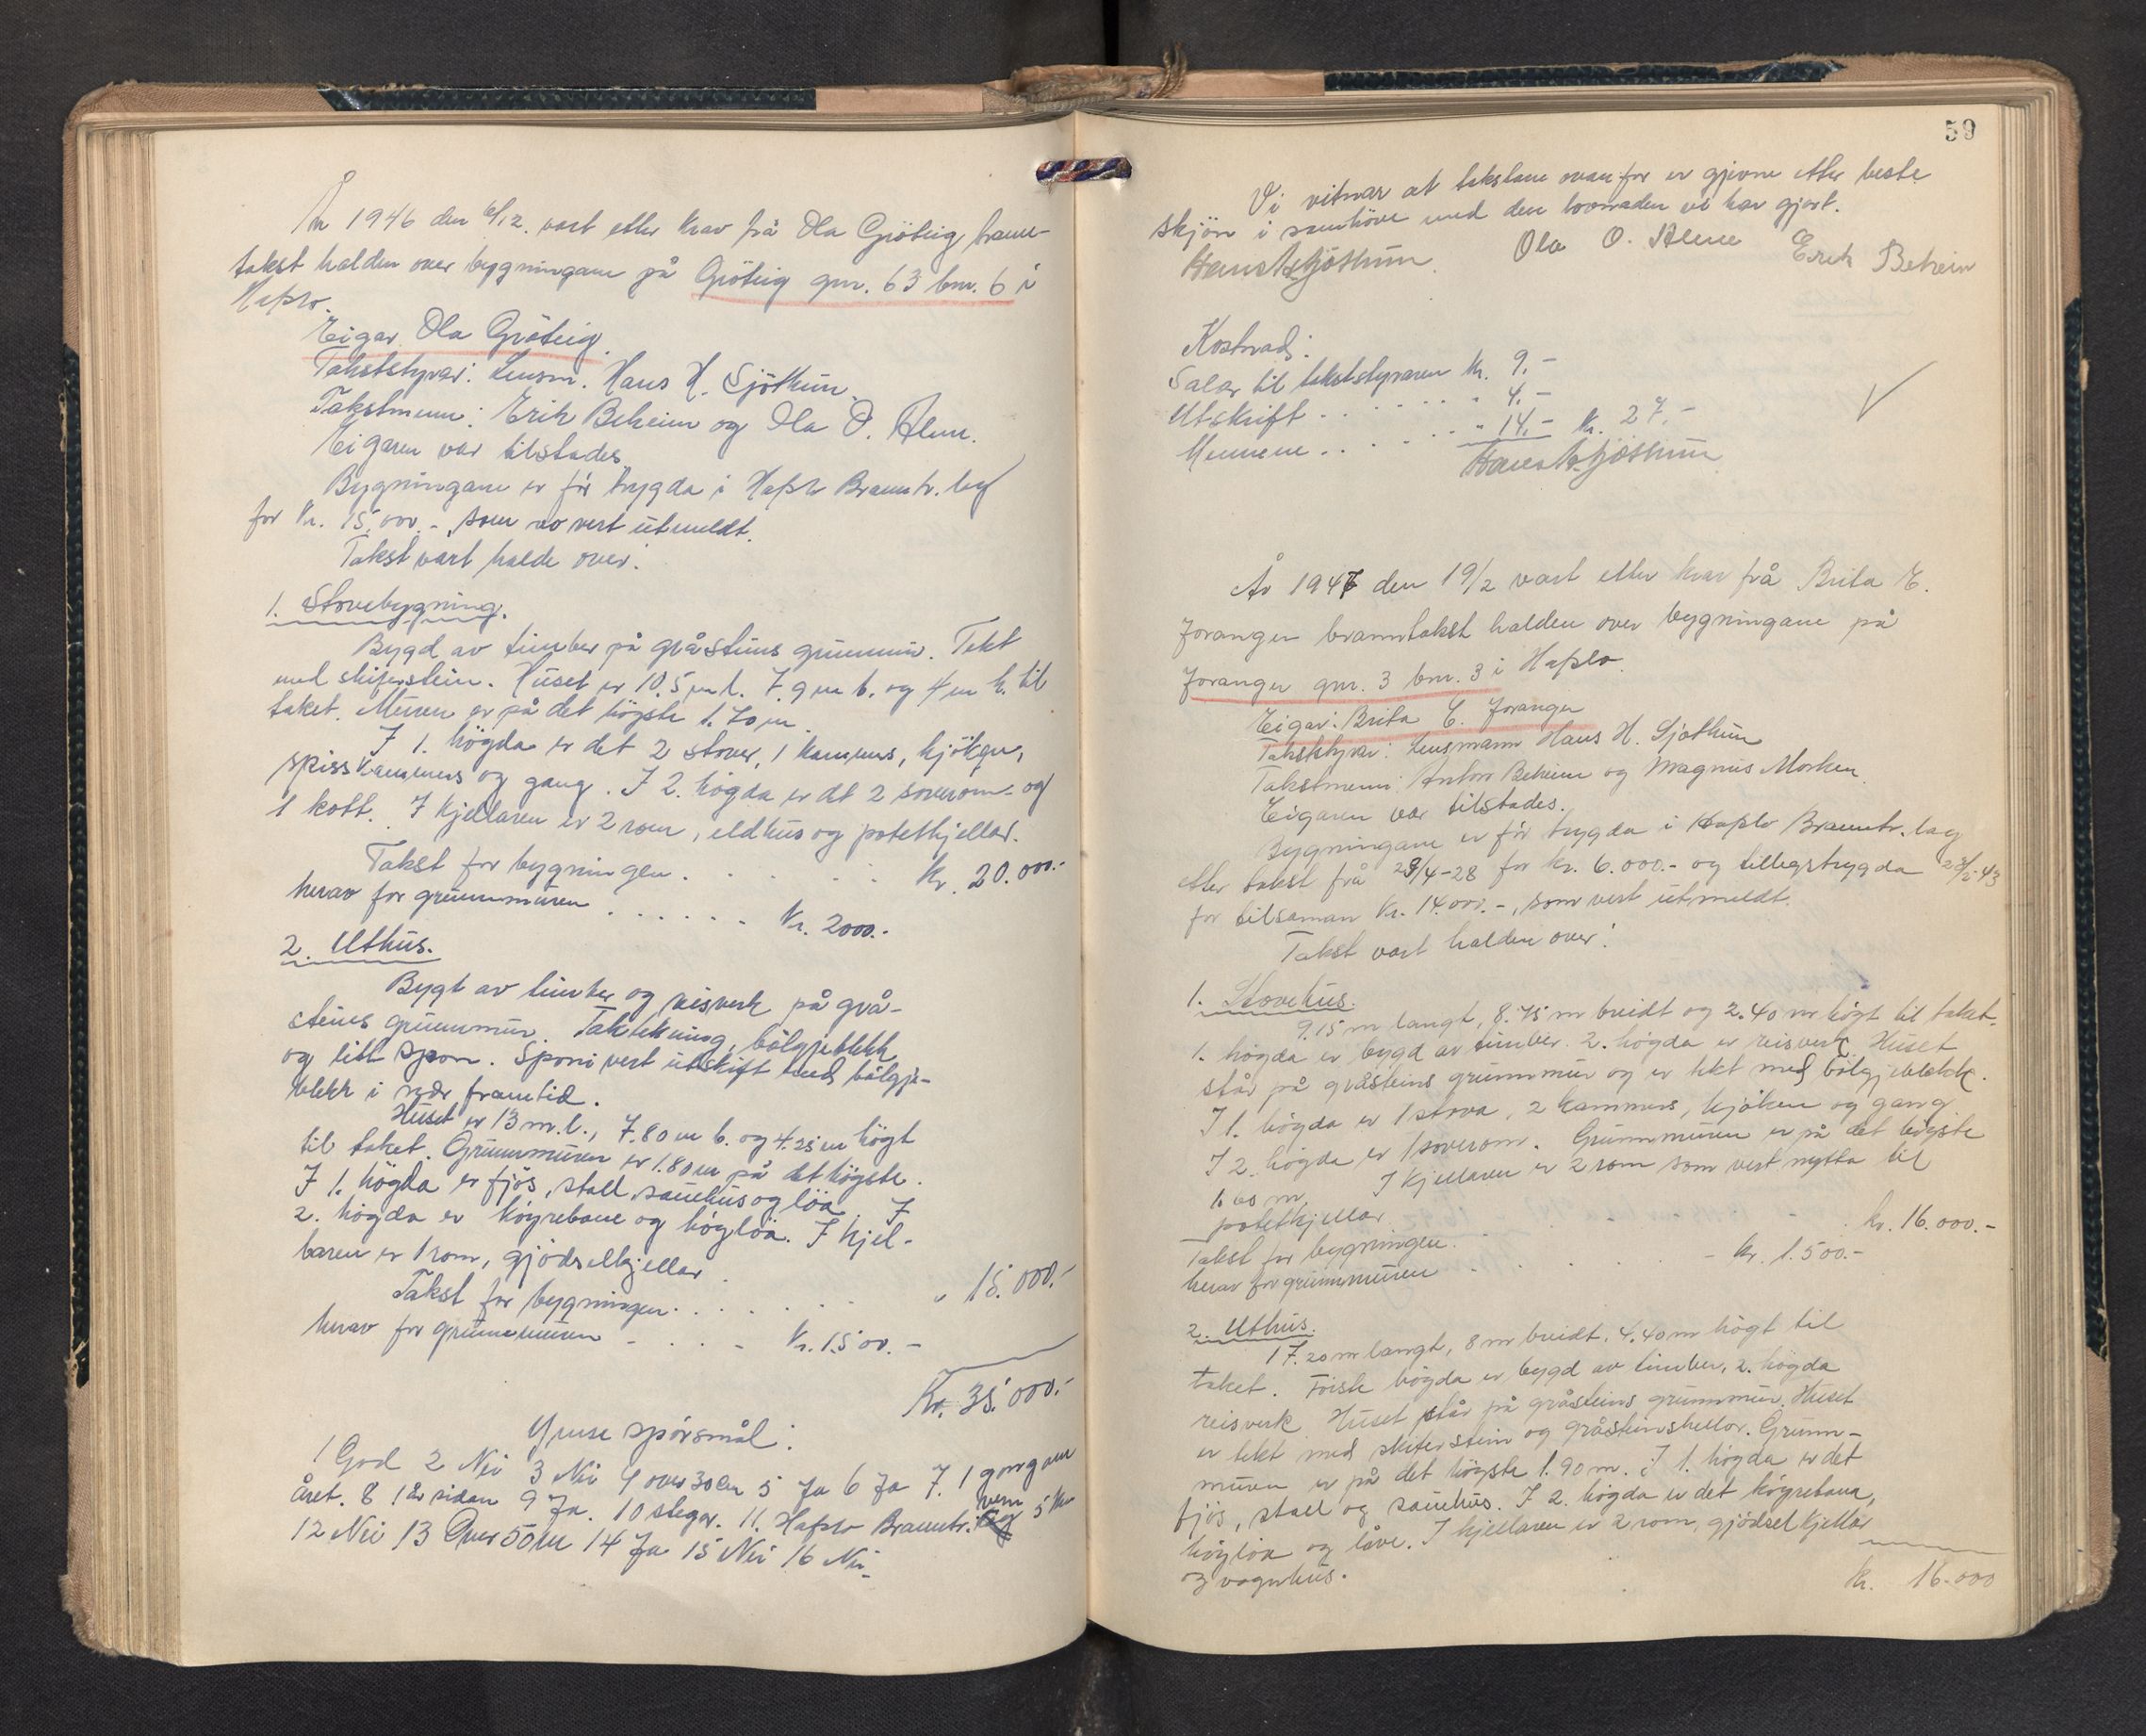 År 1946 den 6/12. vart etter krav frå Ola Gröteig brann-
takst halden over bygningane på Gröteig gnr. 63 bnr. 6 i
Hafslo.
Eigar. Ola Gröteig.
Takststyrar: Lensm. Hans H. Sjöthun.
Takstmenn: Erik Beheim og Ola O. Alme.
Eigaren var tilstades.
Bygningane er för trygda i Hafslo Branntr. lag
for Kr. 15.000.-, som no vert utmeldt.
Takst vart halde over:
1. Stovebygning.
Bygd av timber på gråsteins grunnmur. Tekt
med skiferstein. Huset er 10.5 m l. 7.9 m b. og 4 m h. til
taket. Muren er på det högste 1.70 m.
I 1. högda er det 2 stover, 1 kammers, kjöken,
spisskammers og gang. I 2. högda er det 2 soverom og
1 kott. I kjellaren er 2 rom, eldhus og potetkjellar.
Takst for bygningen . . . . . Kr. 20.000.-
herav for grunnmuren . . . . . . Kr. 2000.-
2. Uthus.
Bygt av timber og reisverk på grå-
steins grunnmur. Taktekning, bölgjeblekk
og litt spon. Sponi vert utskift med bölgje-
blekk i nær framtid.
Huset er 13 m. l., 7.80 m b. og 4.25 m högt
til taket. Grunnmuren er 1.80 m på det högste.
I 1. högda er fjös, stall, sauehus og löa. I
2. högda er köyrebane og höylöa. I kjel-
laren er 1 rom, gjödselkjellar.
Takst for bygningen . . . . . . . " 15.000.-
herav for grunnmuren - . . . - Kr. 1500.-
Kr. 35.000.-
Ymse spörsmål:
1 God 2 Nei 3 Nei 4 over 30 cm 5 Ja 6 Ja 7. 1 gong om
året. 8 1 år sidan 9 Ja. 10 steger. 11. Hafslo Branntr. 5 km
12 Nei 13 Over 50 m 14 Ja 15 Nei 16 Nei.
59
Vi vitnar at takstane ovanfor er gjevne etter beste
skjön i samhöve med den lovnaden vi har gjort.
Hans H. Sjöthun. Ola O. Alme Erik Beheim
Kostnad:
Salær til takststyraren Kr. 9.-
Utskrift . . . . . . " 4.-
Mennene . . . . . " 14.- Kr. 27.-
Hans H. Sjöthun
År 1947 den 19/2 vart etter krav frå Brita E.
Joranger branntakst halden over bygningane på
Joranger gnr. 3 bnr. 3 i Hafslo.
Eigar: Brita E. Joranger
Takststyrar: Lensmann Hans H. Sjöthun
Takstmenn: Anton Beheim og Magnus Morken.
Eigaren var tilstades.
Bygningane er för trygda i Hafslo Branntr. lag
etter takst frå 28/4-28 for kr. 6.000.- og tilleggstrygda 23/2-43
for tilsaman Kr. 14.000.-, som vert utmeldt.
Takst vart halden over:
1. Stovehus.
9.15 m langt, 8.75 m breidt og 2.40 m högt til taket.
1. högda er bygd av timber. 2. högda er reisverk. Huset
står på gråsteins grunnmur og er tekt med bölgjeblekk.
I 1. högda er 1 stova, 2 kammers, kjöken og gang
I 2. högda er 1 soverom. Grunnmuren er på det högste
1.60 m. I kjellaren er 2 rom som vert nytta til
potetkjellar.
Takst for bygningen . . . . . Kr. 16.000.-
herav for grunnmuren . . . . - Kr. 1.500.-
2. Uthus.
17.20 m langt, 8 m breidt, 4.40 m högt til
taket. Förste högda er bygd av timber, 2. högda
reisverk. Huset står på gråsteins grunnmur. Huset
er tekt med skiferstein og gråsteinshellor. Grunn-
muren er på det högste 1.90 m. I 1. högda er det
fjös, stall og sauehus. I 2. högda er det köyrebana,
höylöa og låve. I kjellaren er 2 rom, gjödselkjellar
og vognhus.
Kr. 16.000